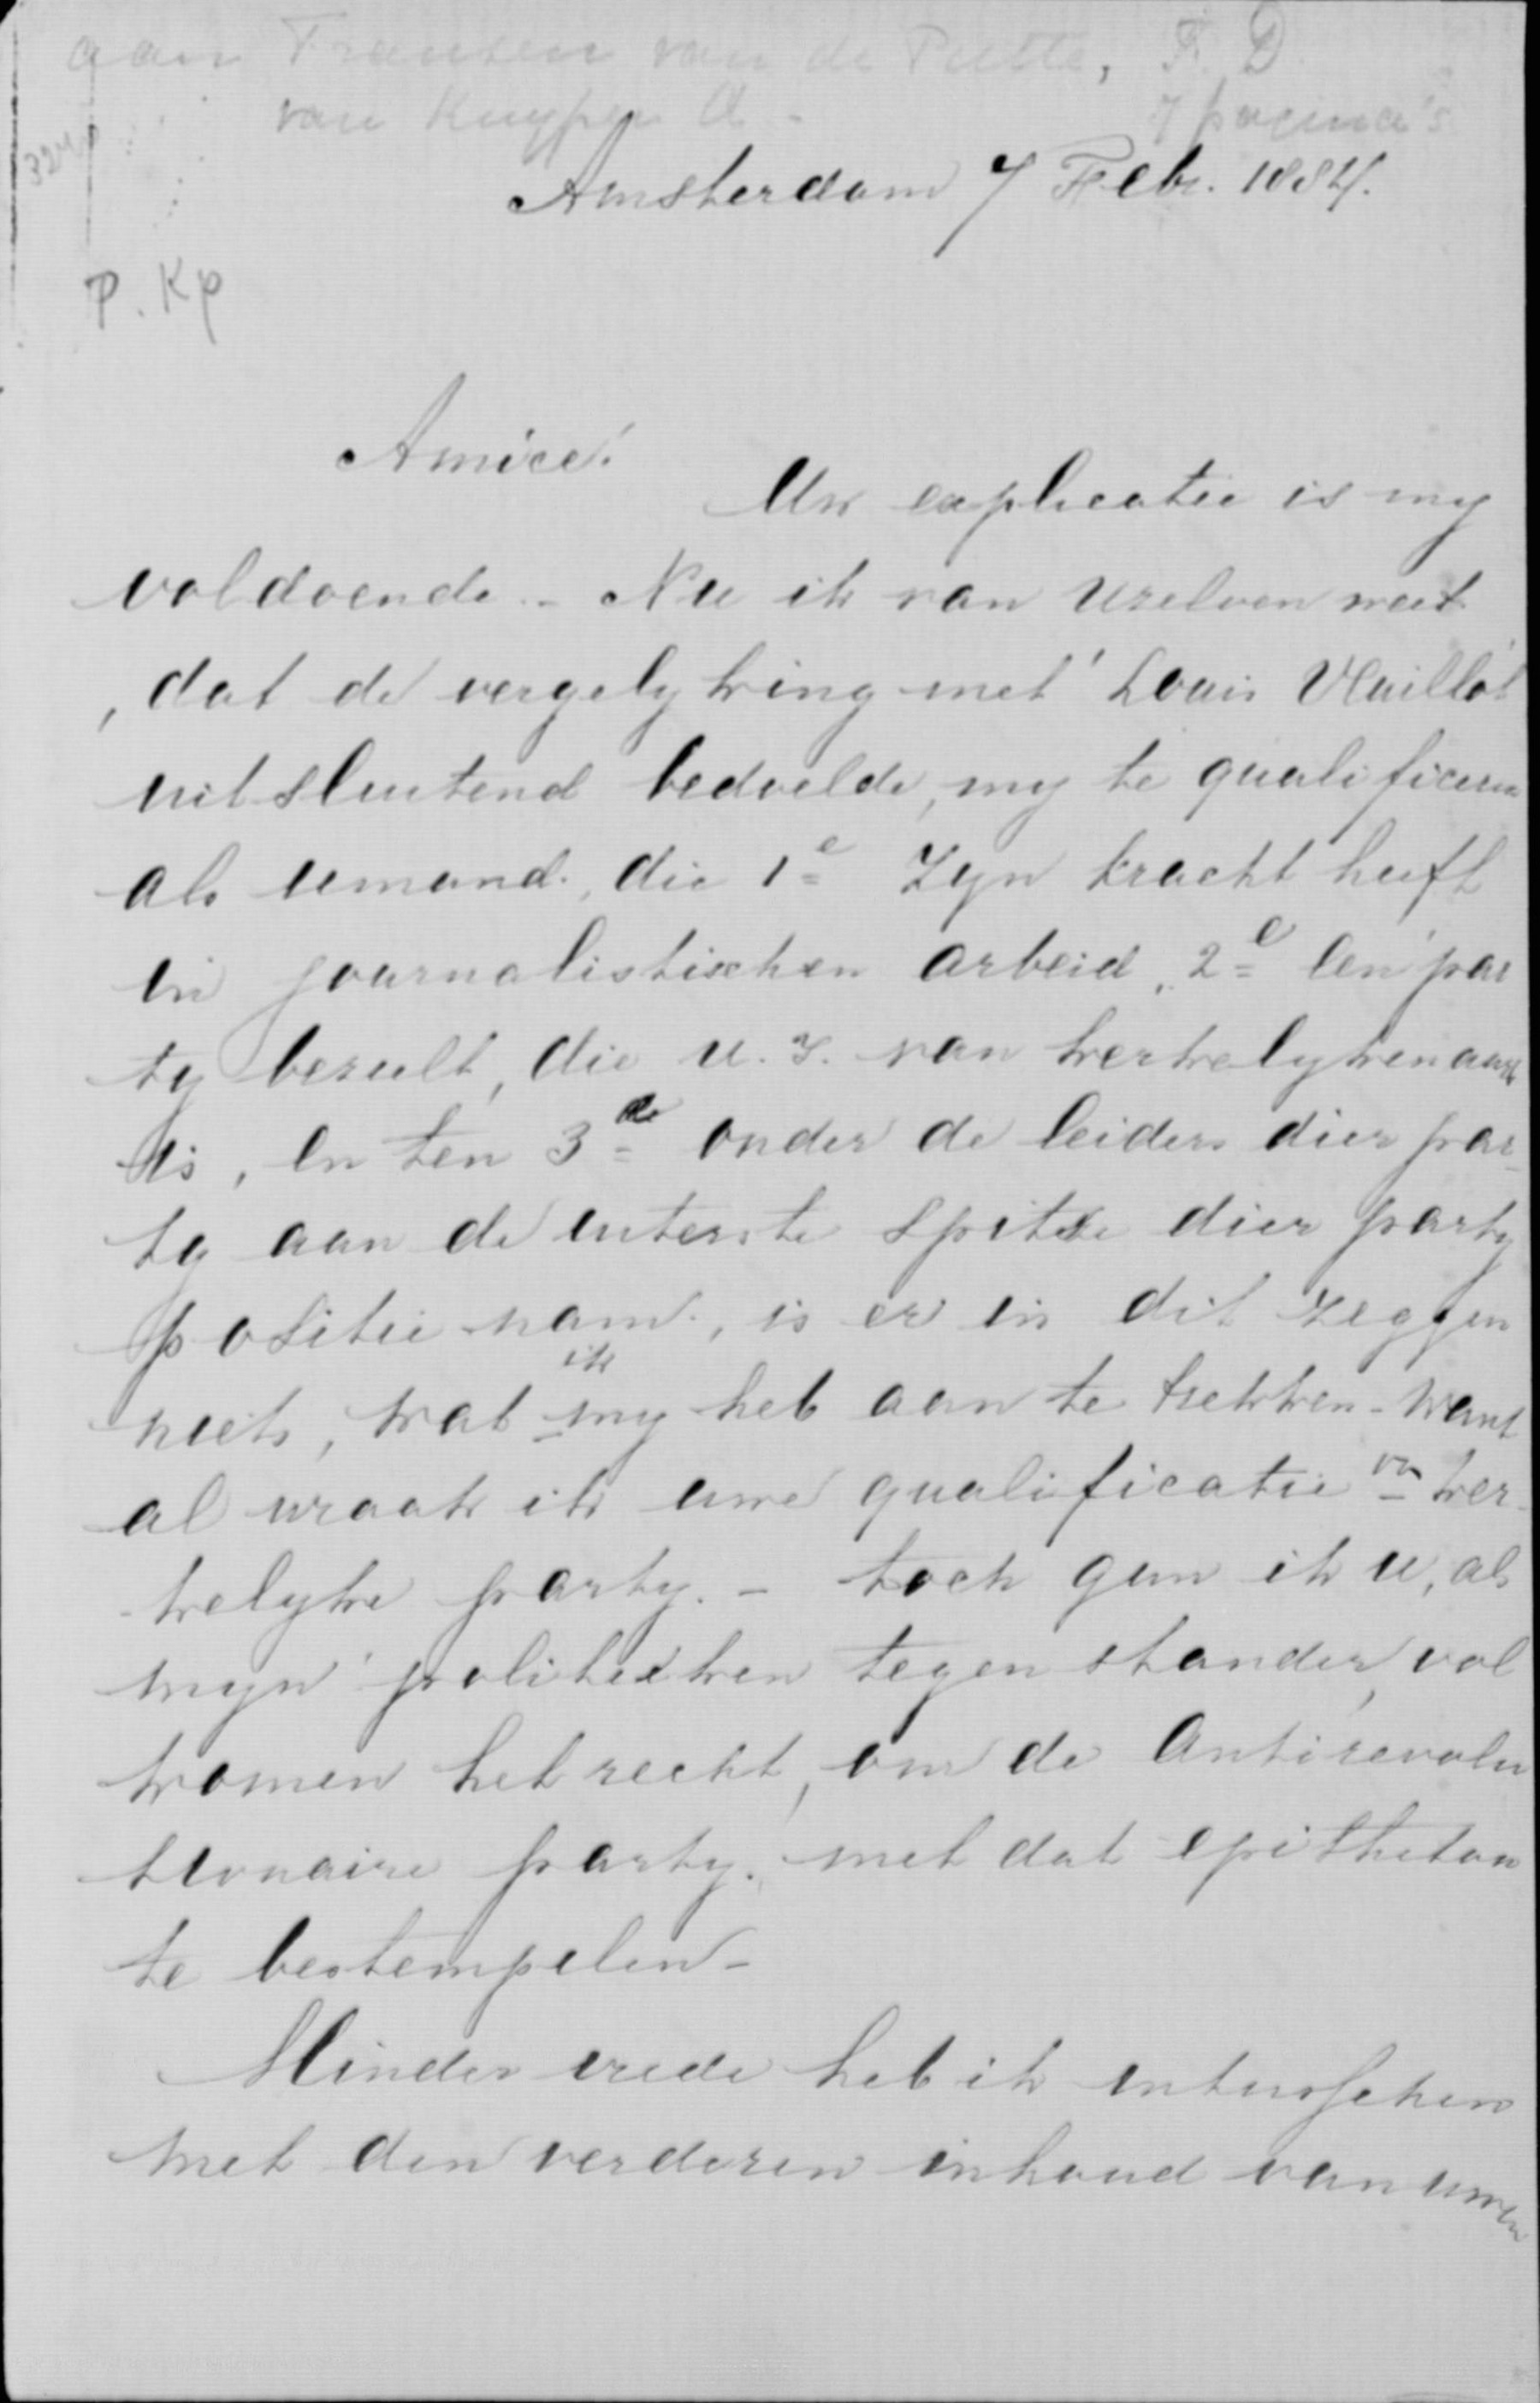 aan Fransen van de Putte, F. D
van Kuyper A. - 7 pagina's
324
Amsterdam 7 Febr. 1884.
P. Kp
Amice!
Uw explicatie is my
voldoende. - Nu ik van Uzelven weet
, dat de vergelyking met Louis Veuillot
uitsluitend bedoelde, my te qualificeren
als iemand, die 1e Zyn kracht heeft
in journalistieken arbeid, 2e een par
ty bezielt, die u. z. van kerkelyken aard
is, en ten 3de onder de leiders dier par-
ty aan de uiterste spitse dier party
positie nam., is er in dit zeggen
niets, wat ik my heb aan te trekken - Want
al wraak ik uwe qualificatie van ker-
kelyke party. - toch gun ik u, als
myn politieken tegenstander, vol
komen het recht, om de Antirevolu
tionaire party, met dat epitheton
te bestempelen -
Minder vrede heb ik intusschen
met den verderen inhoud van uwen